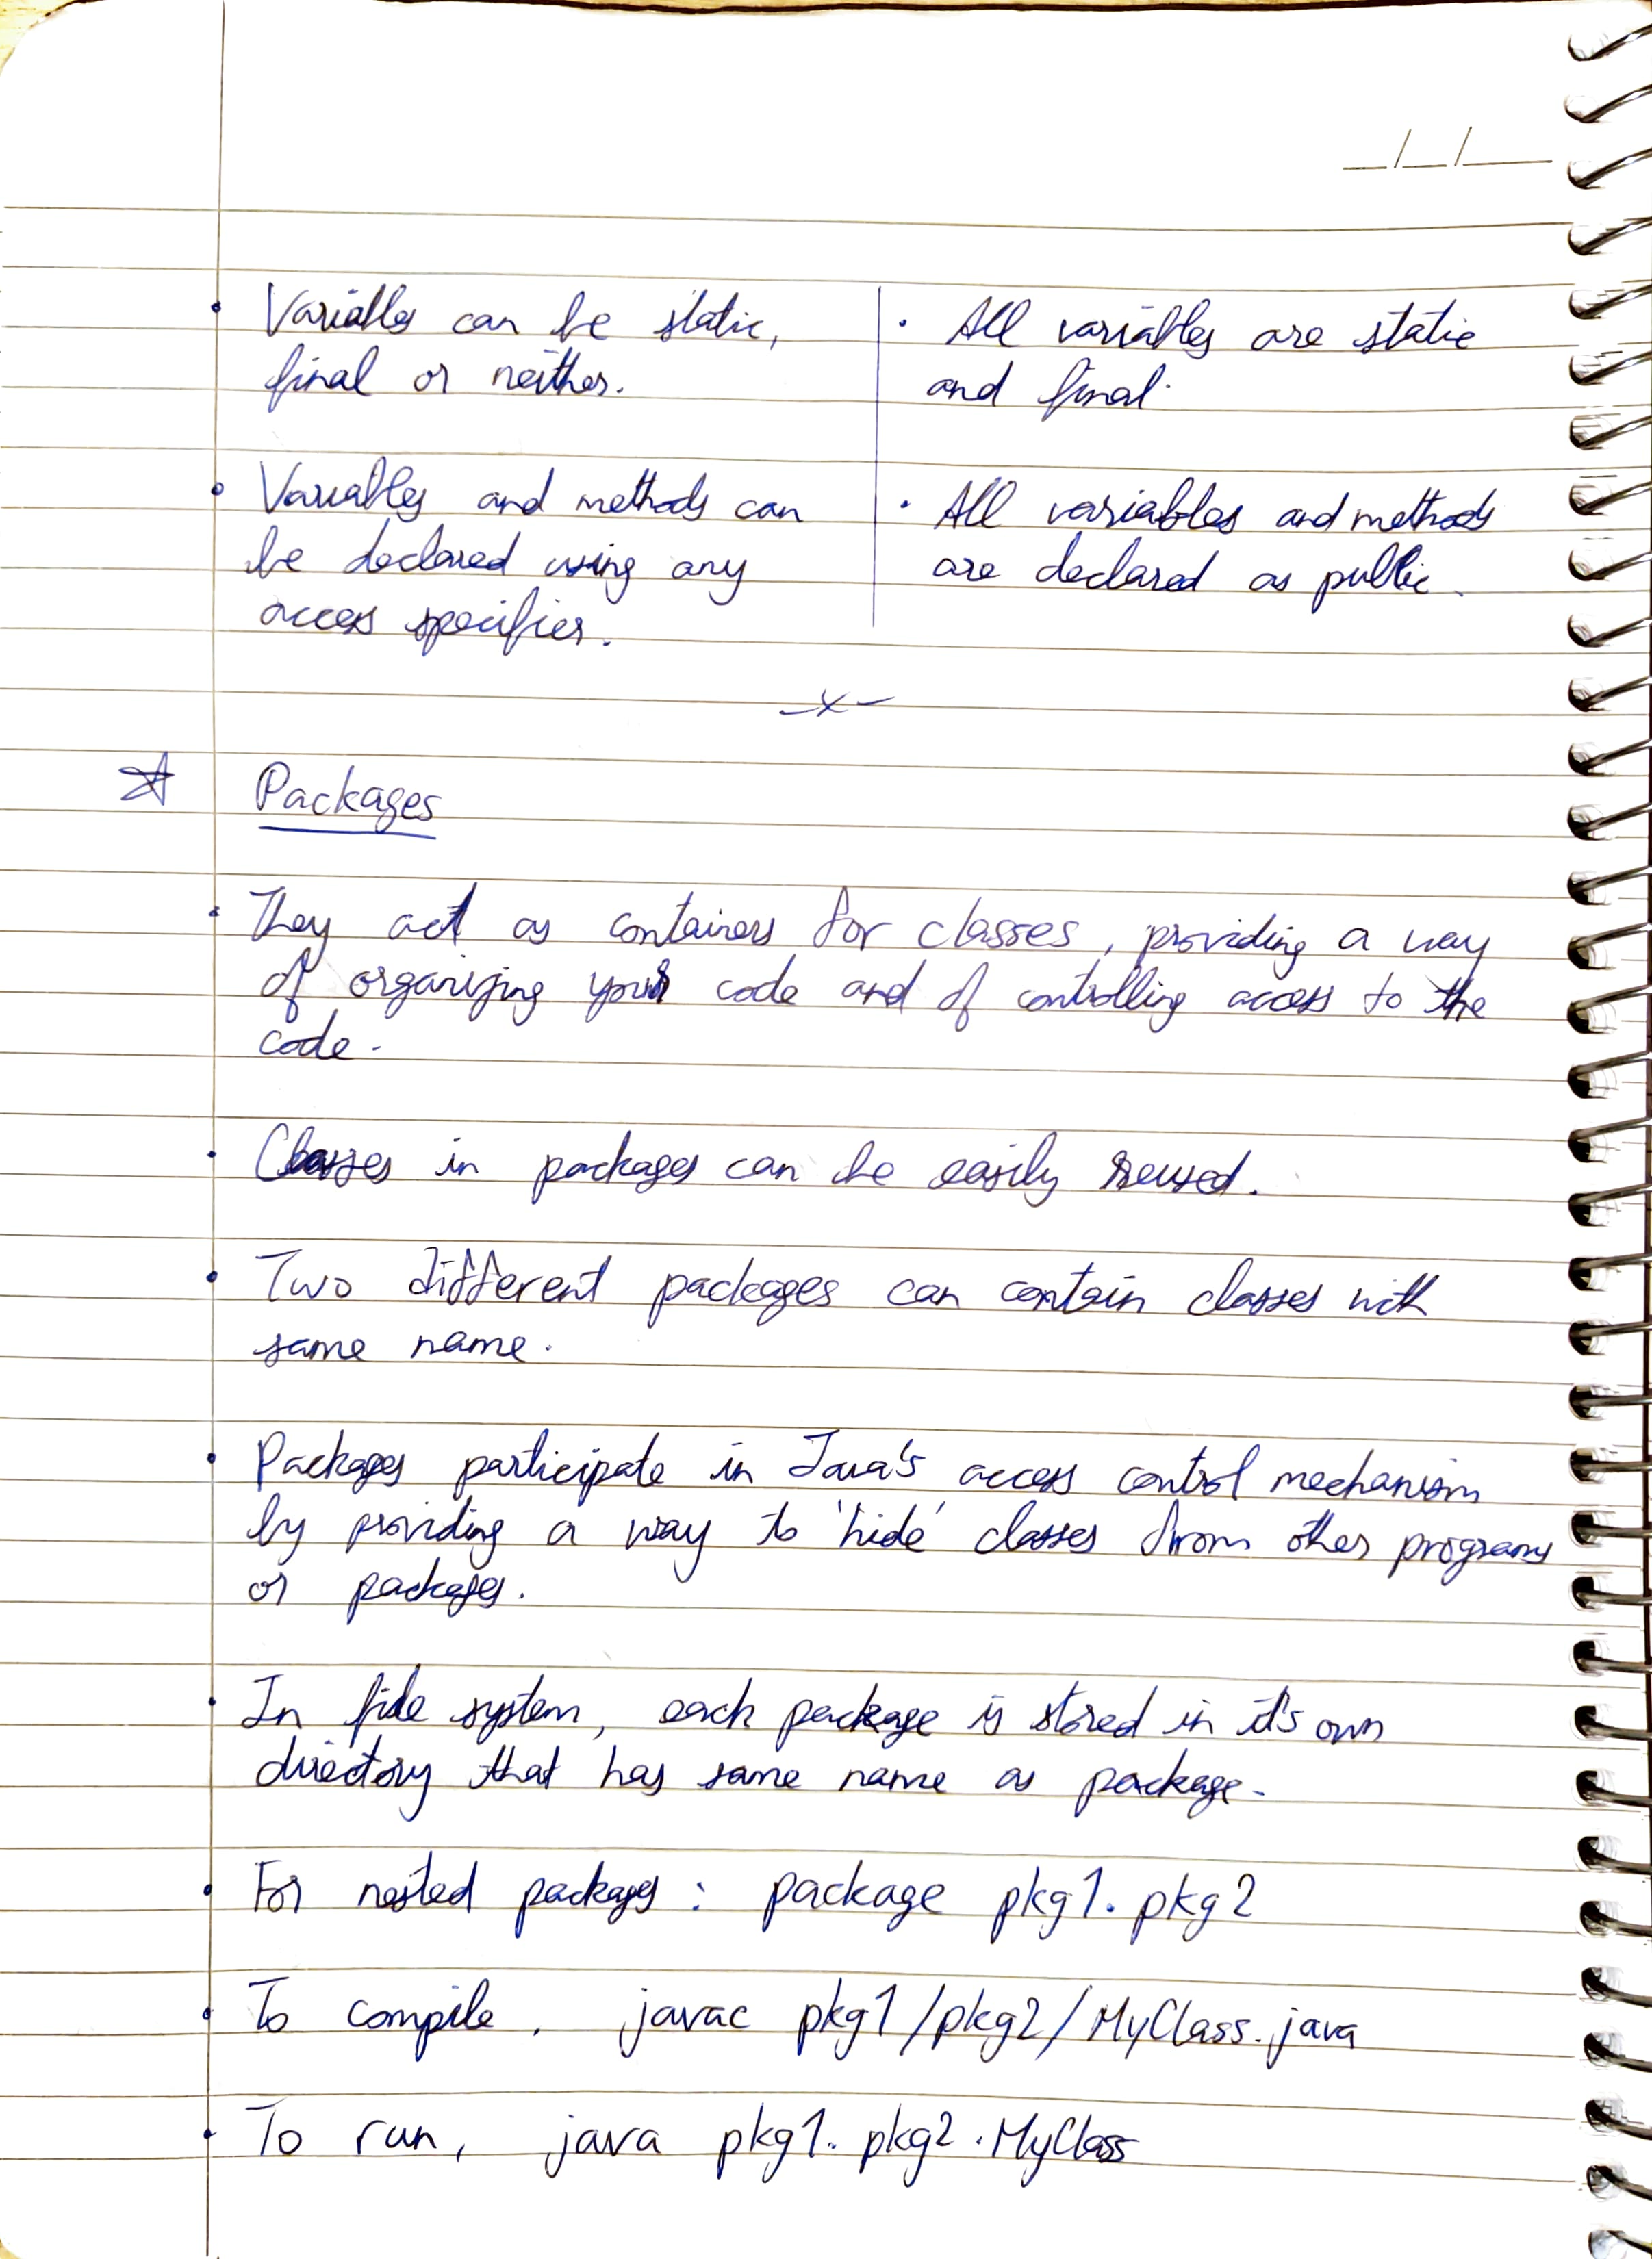 • Variables can be static,
final or neither.
• Variables and methods can
be declared using any
access specifier.
• All variables are static
and final.
• All variables and methods
are declared as public.
—x—
☆ Packages
• They act as containers for classes, providing a way
of organizing your code and of controlling access to the
code.
• Classes in packages can be easily reused.
• Two different packages can contain classes with
same name.
• Packages participate in Java's access control mechanism
by providing a way to 'hide' classes from other programs
or packages.
• In file system, each package is stored in it's own
directory that has same name as package.
• For nested packages : package pkg1.pkg2
• To compile, javac pkg1/pkg2/MyClass.java
• To run, java pkg1.pkg2.MyClass